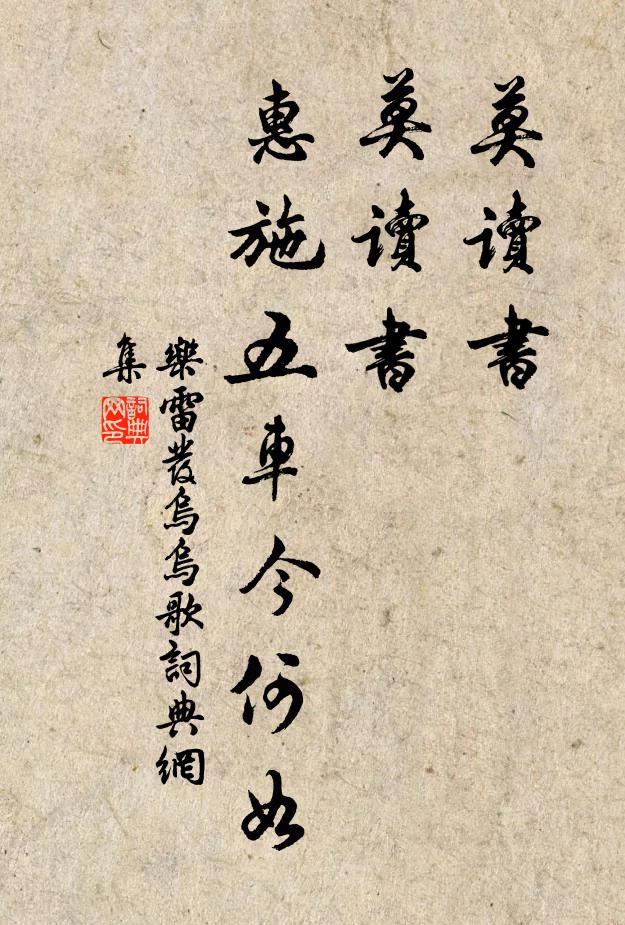 莫讀書
莫讀書
惠施五車今何如
樂雷發烏烏歌詞典網
集
詞典
网印